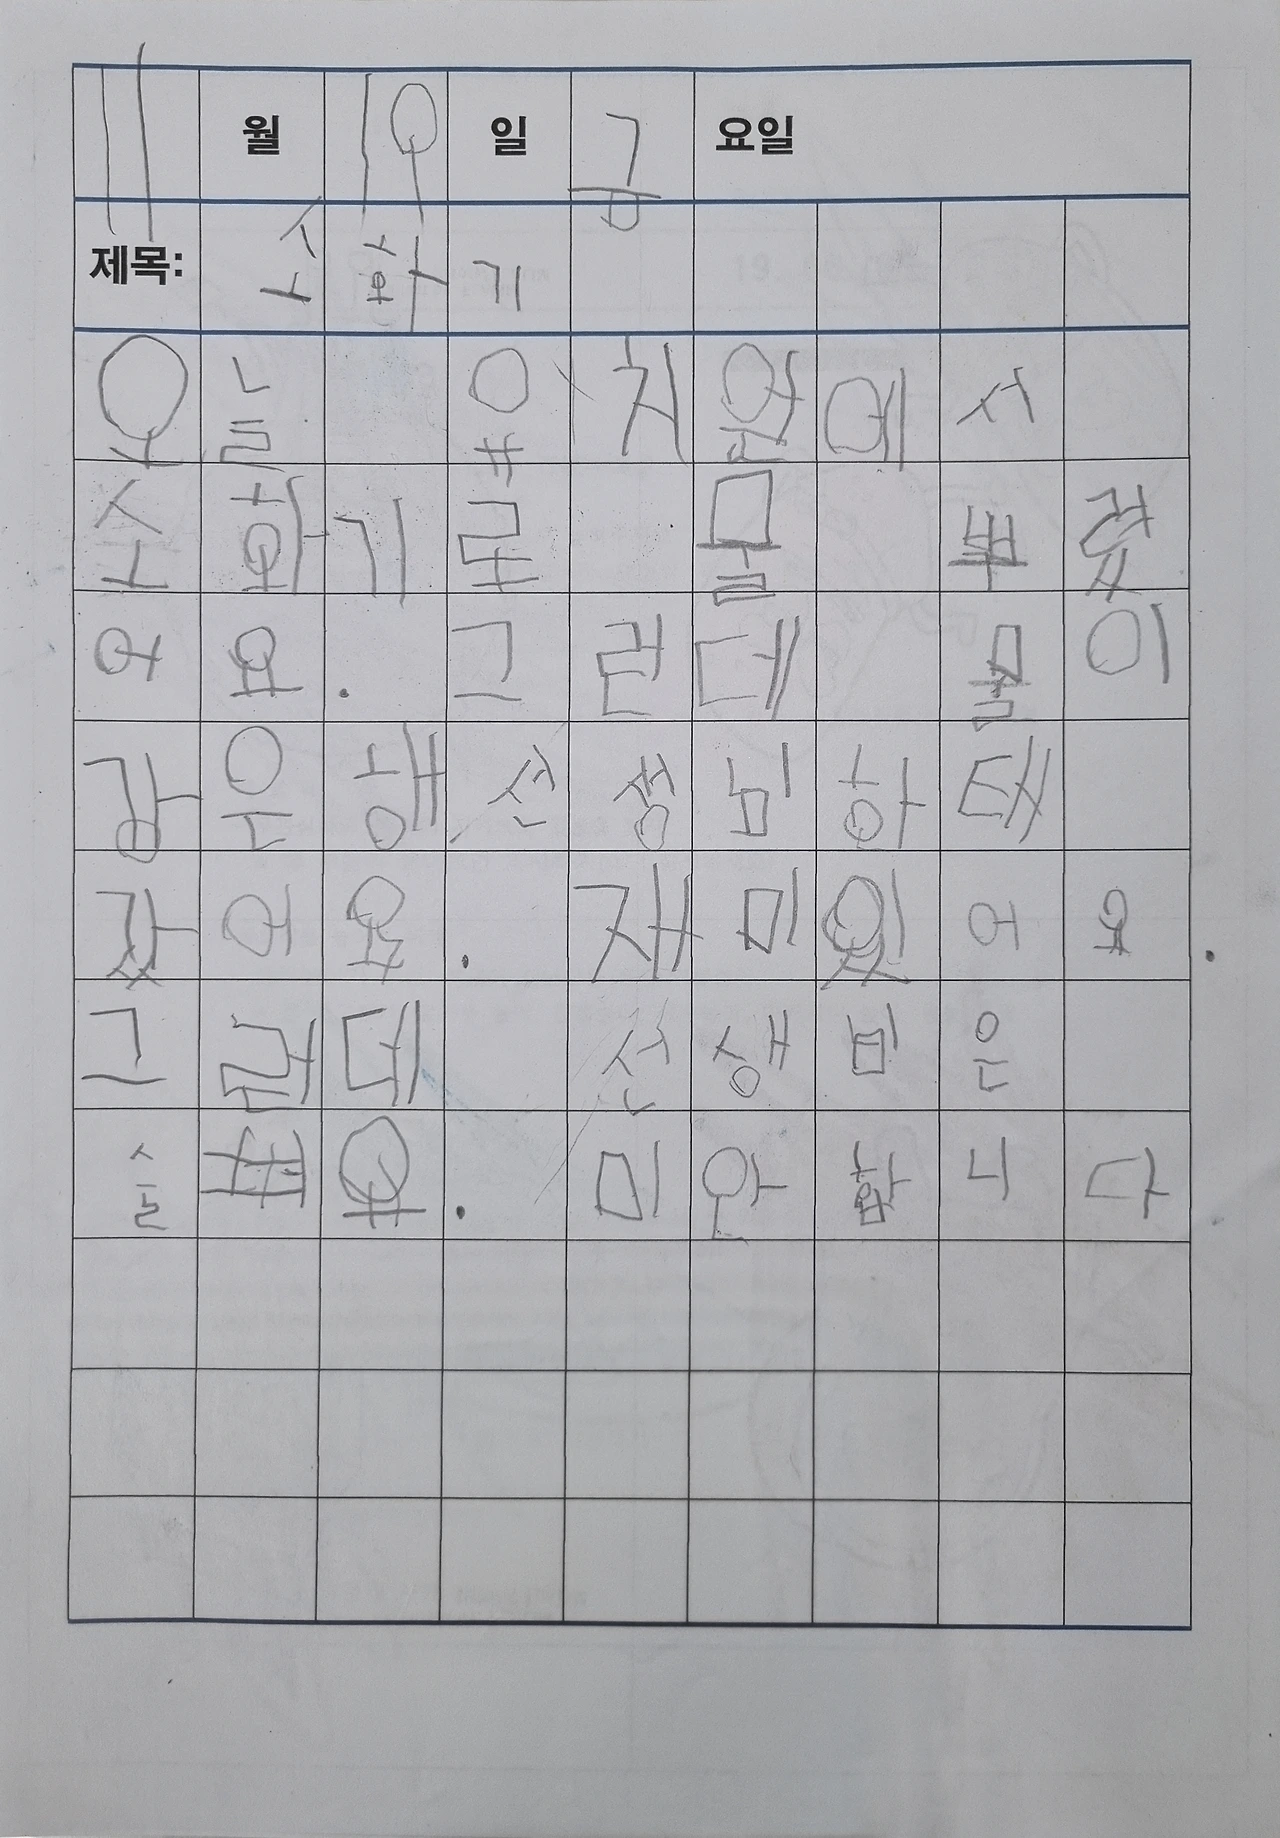 11 월 19 일 금 요일
제목: 소화기
오늘 유치원에서
소화기로 물 뿌렸
어요. 그런데 물이
강은행선생님항테
갔어요. 재미있어요.
그런데 선생님은
슬퍼요. 미안합니다